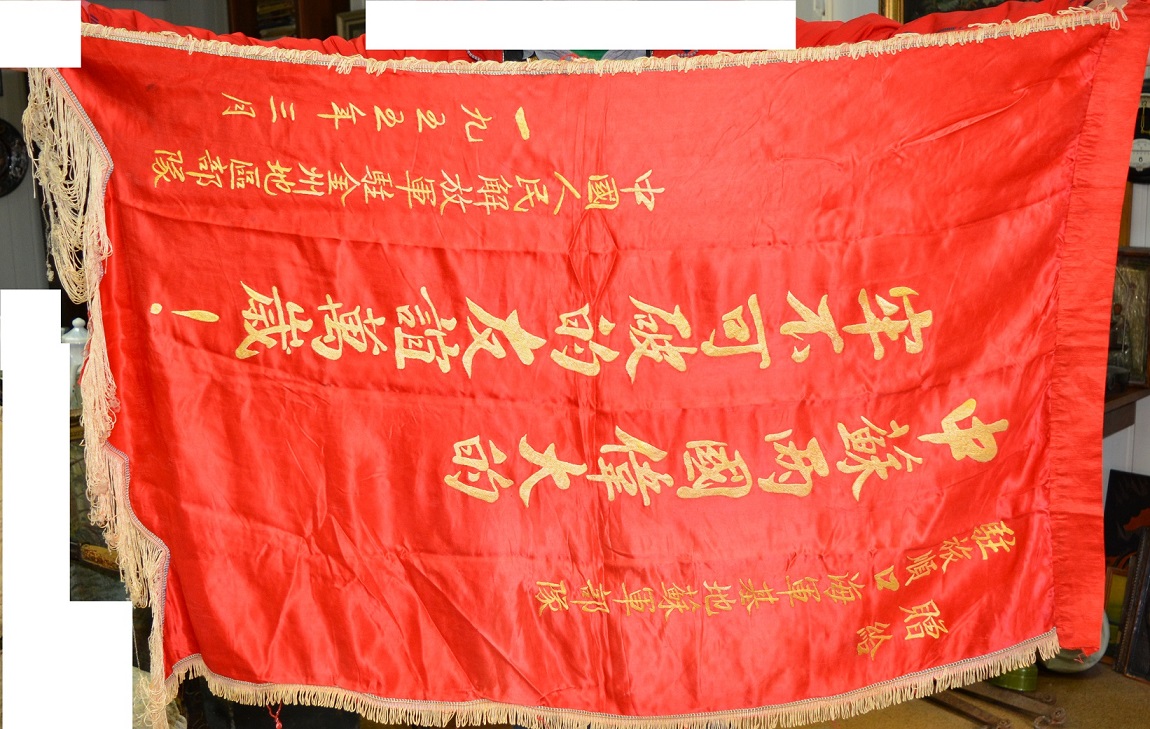 贈給
駐旅順口海軍基地蘇軍部隊
中蘇兩國偉大的
牢不可破的友誼萬歲！
中國人民解放軍駐金州地區部隊
一九五五年三月